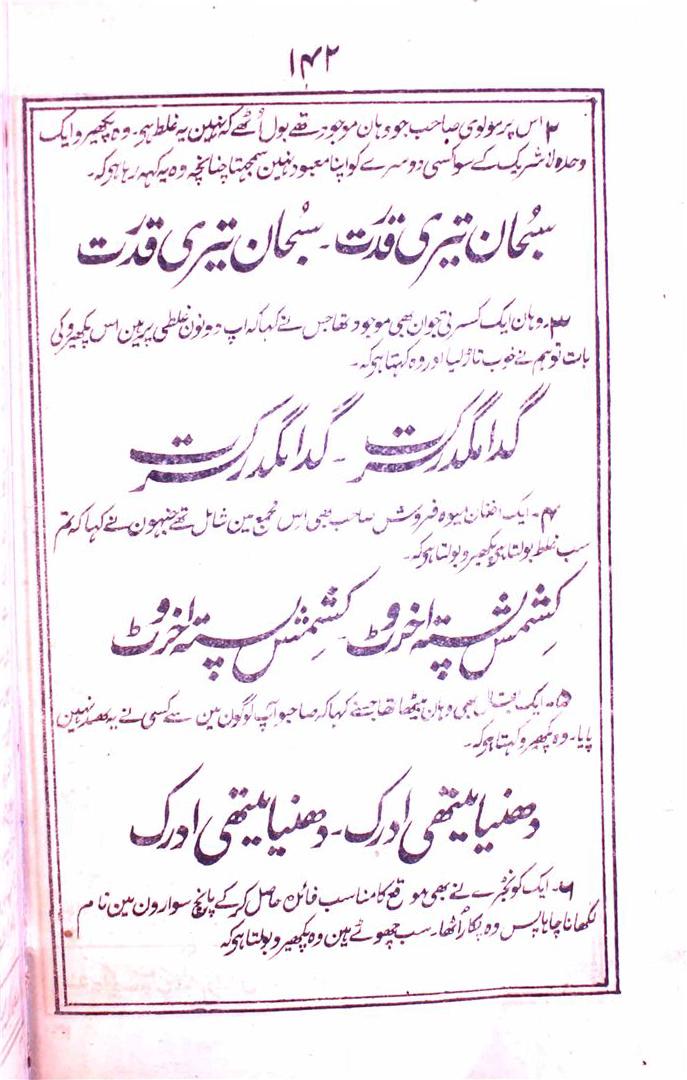 ۱۴۲
۲ اس پر مولوی صاحب جو وہان موجود تھے بول اُٹھے کہ نہین یہ غلط ہو۔ وہ پکھیرو ایک
وحدہ لاشریک کے سوکسی دوسرے کو اپنا معبود نہین سمجھتا چنانچہ وہ یہ کہہ رہا ہو کہ۔
سُبحان تیری قدرت۔ سُبحان تیری قدرت
۳۔ وہان ایک کسرتی جوان بھی موجود تھا جس نے کہا کہ آپ دونون غلطی پر ہین اس پکھیرو کی
بات تو ہم نے خوب تاڑ لیا اور وہ کہتا ہو کہ۔
گدا مگدر کسرت۔ گدا مگدر کسرت
۴۔ ایک افغان میوہ فروش صاحب بھی اس مجمع مین شامل تھے جنہون نے کہا کہ تم
سب غلط بولتا ہی پکھیرو بولتا ہو کہ۔
کشمش پستہ اخروٹ۔ کشمش پستہ اخروٹ
۵۔ ایک بقال بھی وہان بیٹھا تھا جسنے کہا کہ صاحبو آپ لوگون مین سے کسی نے یہ بھید نہین
پایا۔ وہ پکھیرو کہتا ہو کہ۔
دھنیا میتھی ادرک۔ دھنیا میتھی ادرک
۶۔ ایک کونجڑے نے بھی موقع کا مناسب فائدہ حاصل کر کے پانچ سوارون مین نام
لکھانا چاہا پس وہ پکار اُٹھا۔ سب جھوٹے ہین وہ پکھیرو بولتا ہو کہ